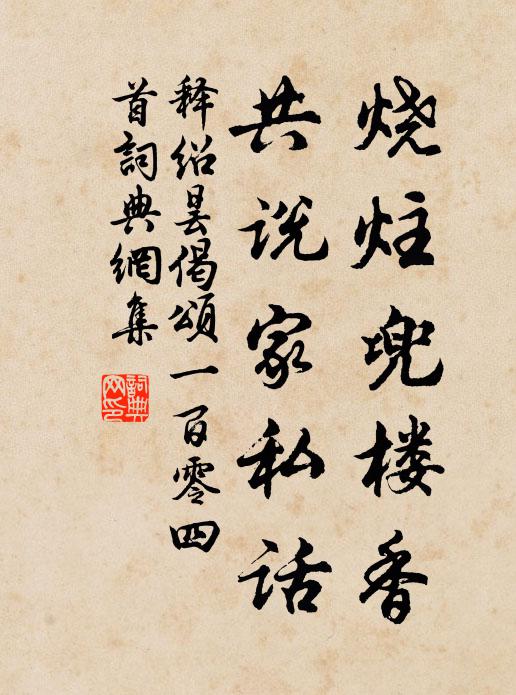 烧炷兜楼香
共说家私话
释绍昙偈颂一百零四
首詞典網集
詞典网印